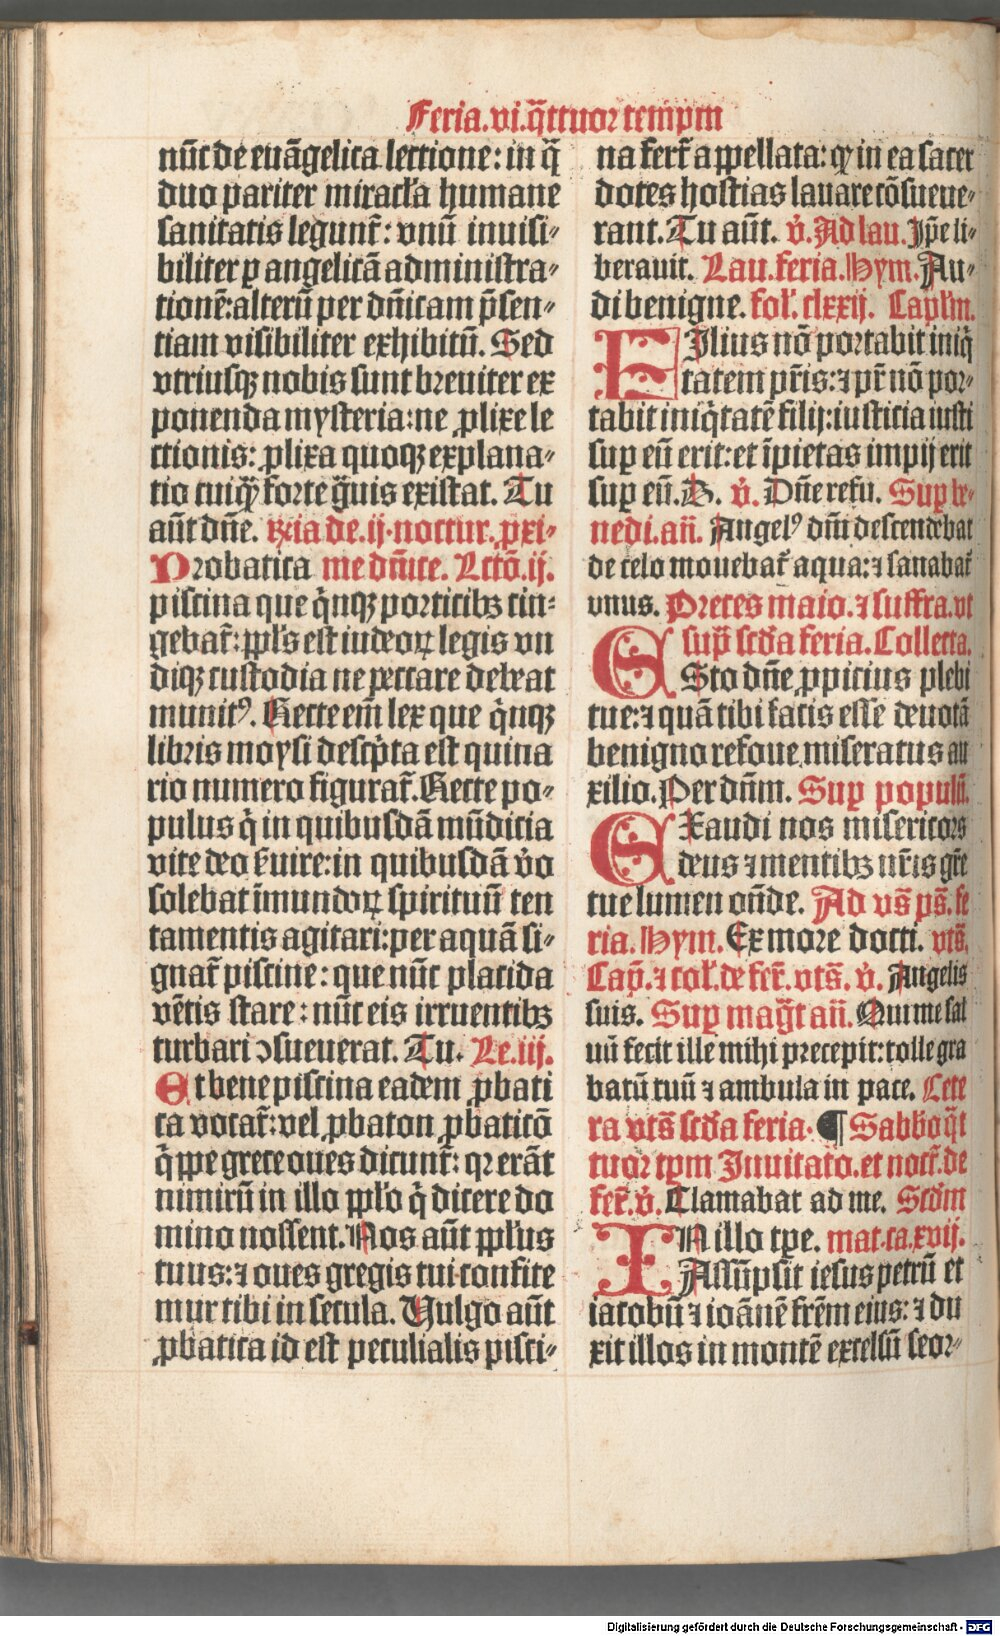 Feria.vi.q̄ttuor tempm
nūc de euāgelica lectione: in q̄
duo pariter miracl'a humane
sanitatis legunt̄: vnū inuisi-
biliter ꝑ angelicā administra-
tionē: alterū per dn̄icam p̄sen-
tiam visibiliter exhibitū. Sed
vtriusqꝫ nobis sunt breuiter ex
ponenda mysteria: ne ꝓlixe le
ctionis: ꝓlixa quoqꝫ explana-
tio cuiqꝫ forte g̈uis existat. Tu
aūt dn̄e. r̄xia de.ij.noctur. ꝓxi-
Probatica me dn̄ice. Lctō.ij.
piscina que q̄nqꝫ porticibꝫ cin-
gebat̄: ppl's est iudeoꝝ legis vn
diqꝫ custodia ne peccare debeat
munitꝰ. Recte em̄ lex que q̄nqꝫ
libris moysi descp̄ta est quina
rio numero figurat̄. Recte po-
pulus q̄ in quibusdā mūdicia
vite deo ẜuire: in quibusdā v̄o
solebat īmundoꝝ spirituū ten
tamentis agitari: per aquā si-
gnat̄ piscine: que nūc placida
vētis stare: nūc eis irruentibꝫ
turbari ↄsueuerat. Tu. Le.iij.
Et bene piscina eadem ꝓbati
ca vocat̄: vel ꝓbaton ꝓbaticō
q̄ppe grece oues dicunt̄: qꝛ erāt
nimirū in illo ppl'o q̄ dicere do
mino nossent. Nos aūt ppl'us
tuus: ⁊ oues gregis tui confite
mur tibi in secula. Vulgo aūt
ꝓbatica id est peculialis pisci-
na fert̄ appellata: qꝫ in ea sacer
dotes hostias lauare cōsueue-
rant. Tu aūt. v̄. Ad lau. Ip̄e li-
berauit. Lau.feria.Hym. Au-
di benigne. fol'. clxxij. Capl'm.
FIlius nō portabit iniq̄
tatem pr̄is: ⁊ pr̄ nō por-
tabit iniq̄tatē filij: iusticia iusti
suꝑ eū erit: et īpietas impij erit
suꝑ eū. R. v̄. Dn̄e refu. Suꝑ be-
nedi.an̄. Angelꝰ dn̄i descendebat
de celo mouebat̄ aqua: ⁊ sanabat̄
vnus. Preces maio. ⁊ suffra.vt
sup̄ scd'a feria. Collecta.
ESto dn̄e ꝓpicius plebi
tue: ⁊ quā tibi facis esse deuotā
benigno refoue miseratus au
xilio. Per dn̄m. Suꝑ populū.
EXaudi nos misericors
deus ⁊ mentibꝫ nr̄is gr̄e
tue lumen on̄de. Ad vs̄ ps̄. fe
ria. Hym. Ex more docti. vts̄.
Cap̄. ⁊ col'. de fer̄. vts̄. v̄. Angelis
suis. Suꝑ mag̈t an̄. Qui me sal
uū fecit ille mihi precepit: tolle gra
batū tuū ⁊ ambula in pace. Cete
ra vts̄ scd'a feria. ¶ Sabb̄o q̄t
tuor tꝑm Inuitato. et noct̄. de
fer̄. v̄. Clamabat ad me. Scd'm
IN illo tꝑe. mat.ca.xvij.
Assūpsit iesus petrū et
iacobū ⁊ ioānē frēm eius: ⁊ du
xit illos in montē excelsū seor-
Digitalisierung gefördert durch die Deutsche Forschungsgemeinschaft - DFG